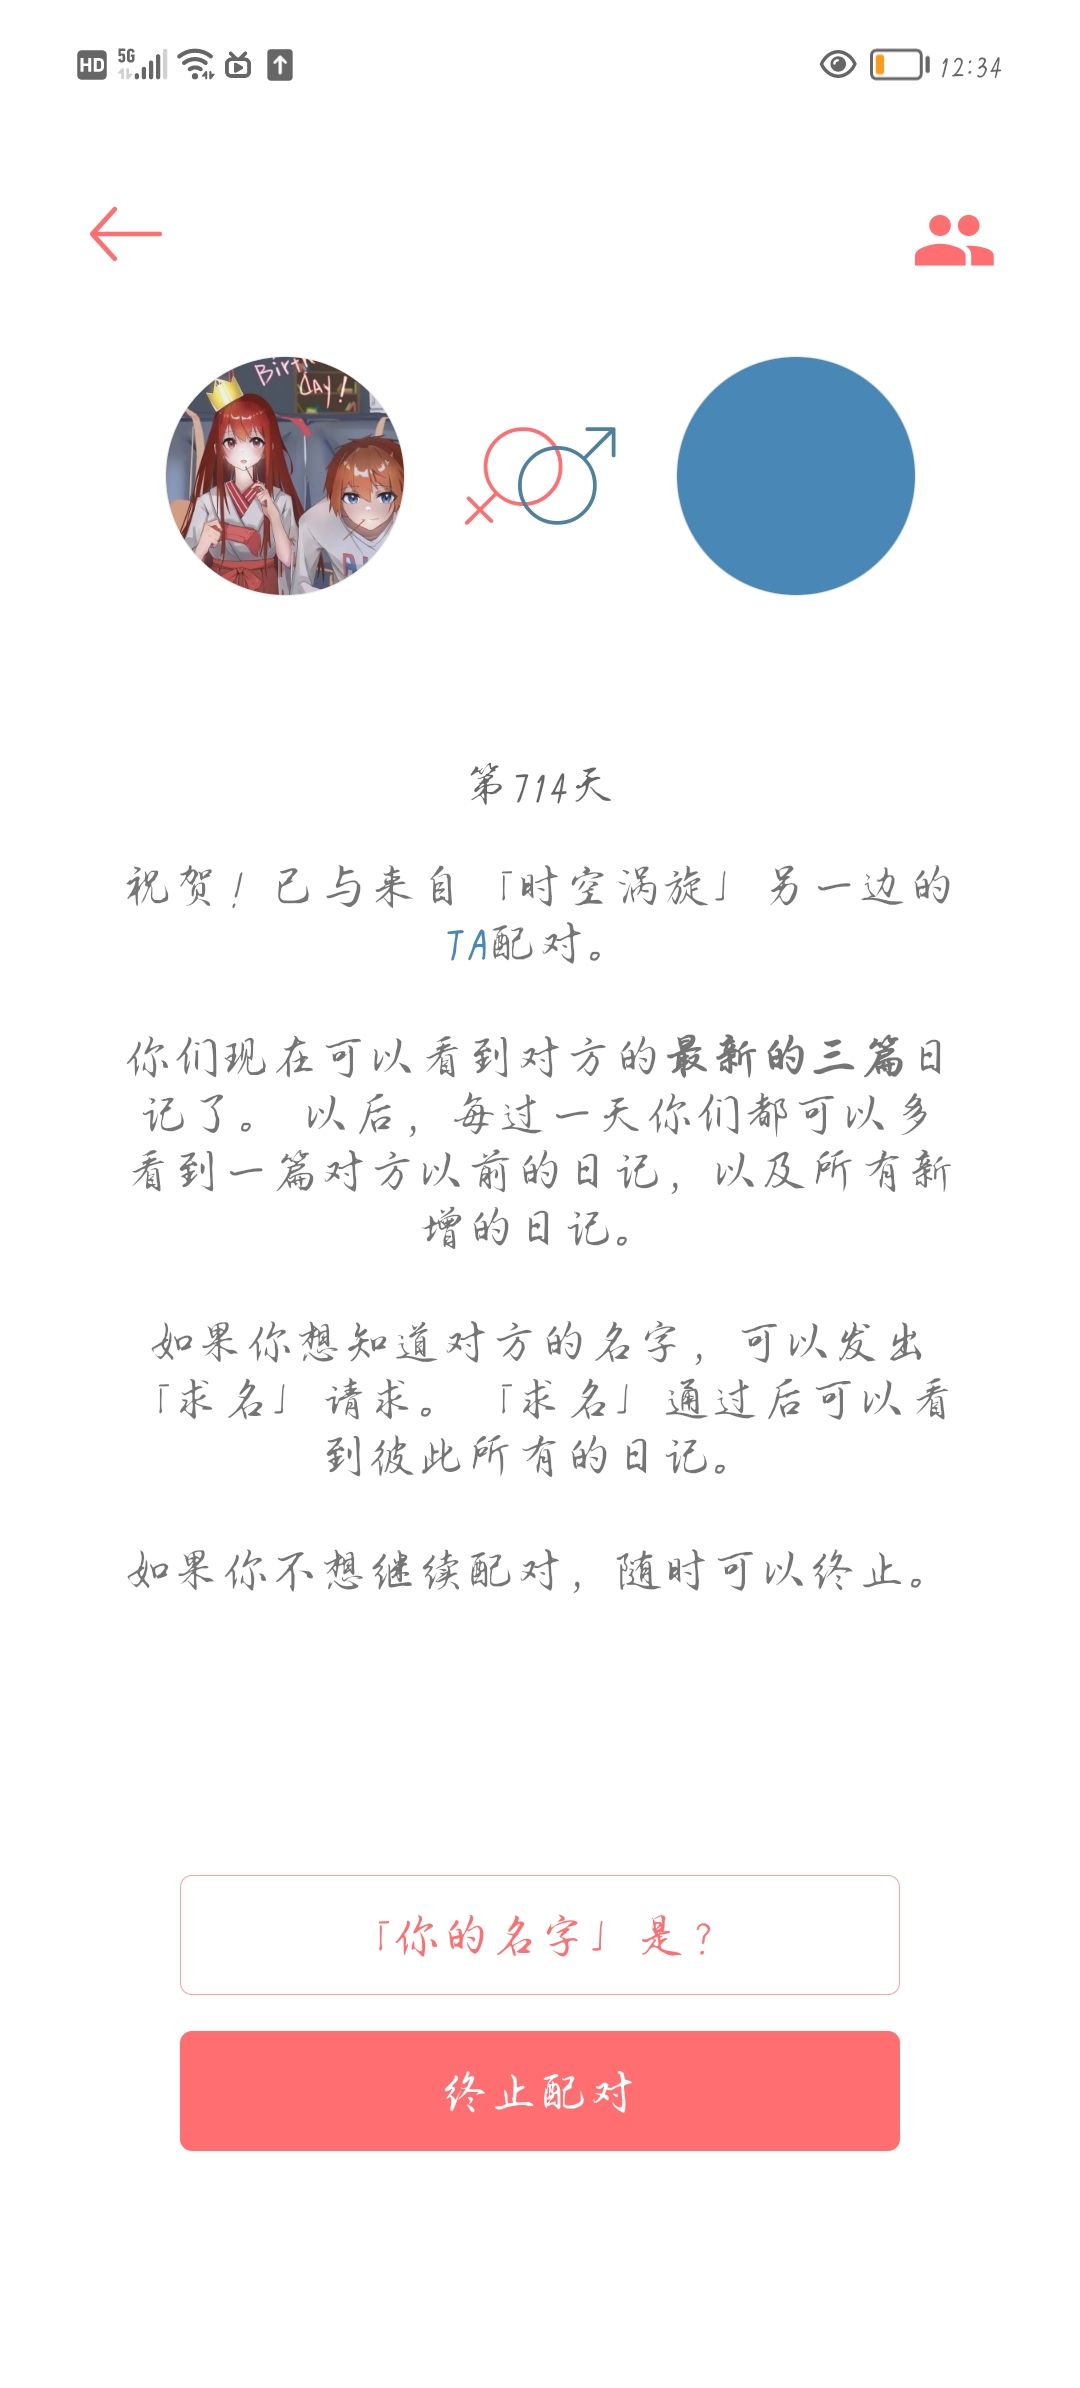 HD 5G 12:34
Birth
DAY!
第714天
祝贺！已与来自「时空涡旋」另一边的
TA配对。
你们现在可以看到对方的最新的三篇日
记了。 以后，每过一天你们都可以多
看到一篇对方以前的日记，以及所有新
增的日记。
如果你想知道对方的名字，可以发出
「求名」请求。 「求名」通过后可以看
到彼此所有的日记。
如果你不想继续配对，随时可以终止。
「你的名字」是？
终止配对